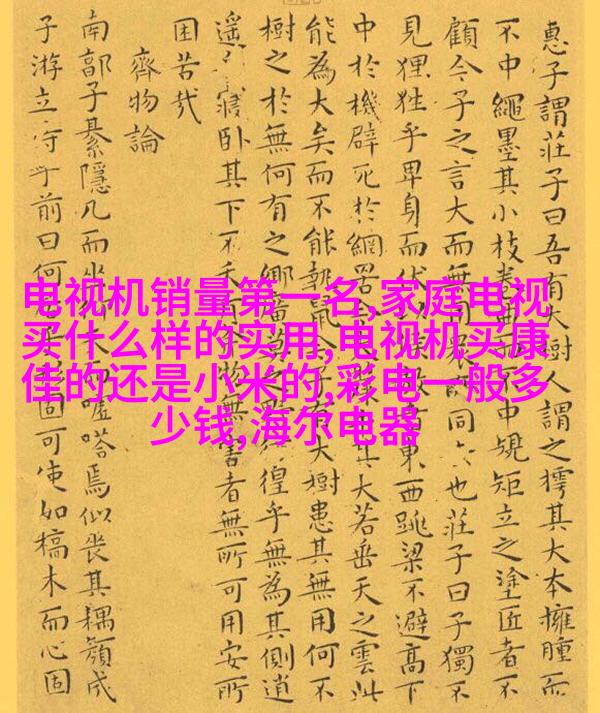 电视机销量第一名,家庭电视
买什么样的实用,电视机买康
佳的还是小米的,彩电一般多
少钱,海尔电器
惠子謂莊子曰吾有大樹人謂之樗其大本擁腫而
不中繩墨其小枝卷曲不中規矩立之塗匠者不
顧今子之言大而無用同也莊子曰子獨不
見狸狌乎卑身而伏東西跳梁不避高下
中於機辟死於網罟其大若垂天之雲此
能為大矣而不能執鼠子有大樹患其無用何不
樹之於無何有之鄉廣莫之野徨乎無為其側逍
遙寢臥其下不物無害者無所可用安所
困苦哉
齊物論
南郭子綦隱几而坐噓嗒焉似喪其耦顏成
子游立侍乎前曰何固可使如槁木而心固